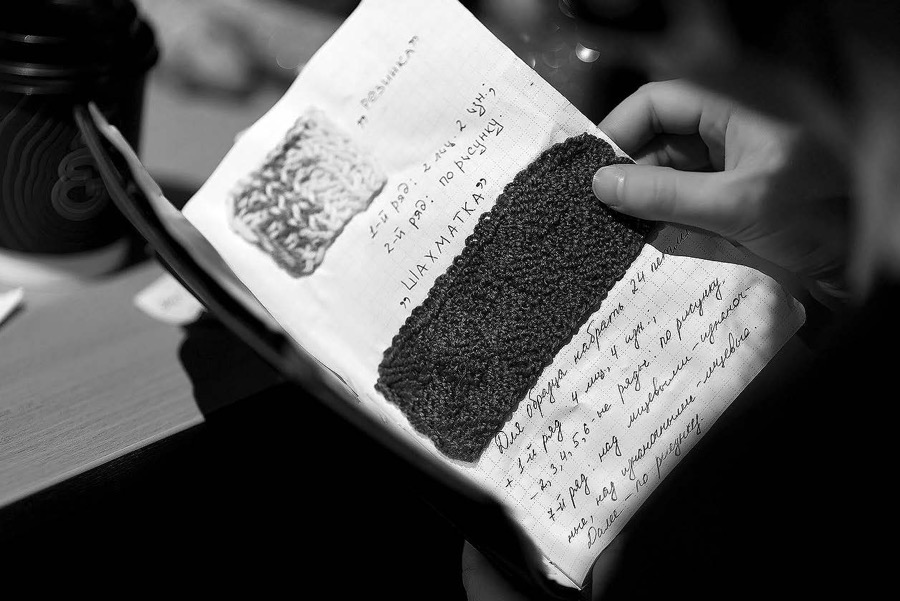 „Резинка”
1-й ряд: 2 лиц. 2 изн.;
2-й ряд: по рисунку.
„ШАХМАТКА”
Для образца набрать 24 петли
+ 1-й ряд 4 лиц, 4 изн.,
- 2, 3, 4, 5, 6-ые ряды: по рисунку.
7-й ряд: над лицевыми-изнаноч-
ные, над изнаночными-лицевые.
Далее-по рисунку.